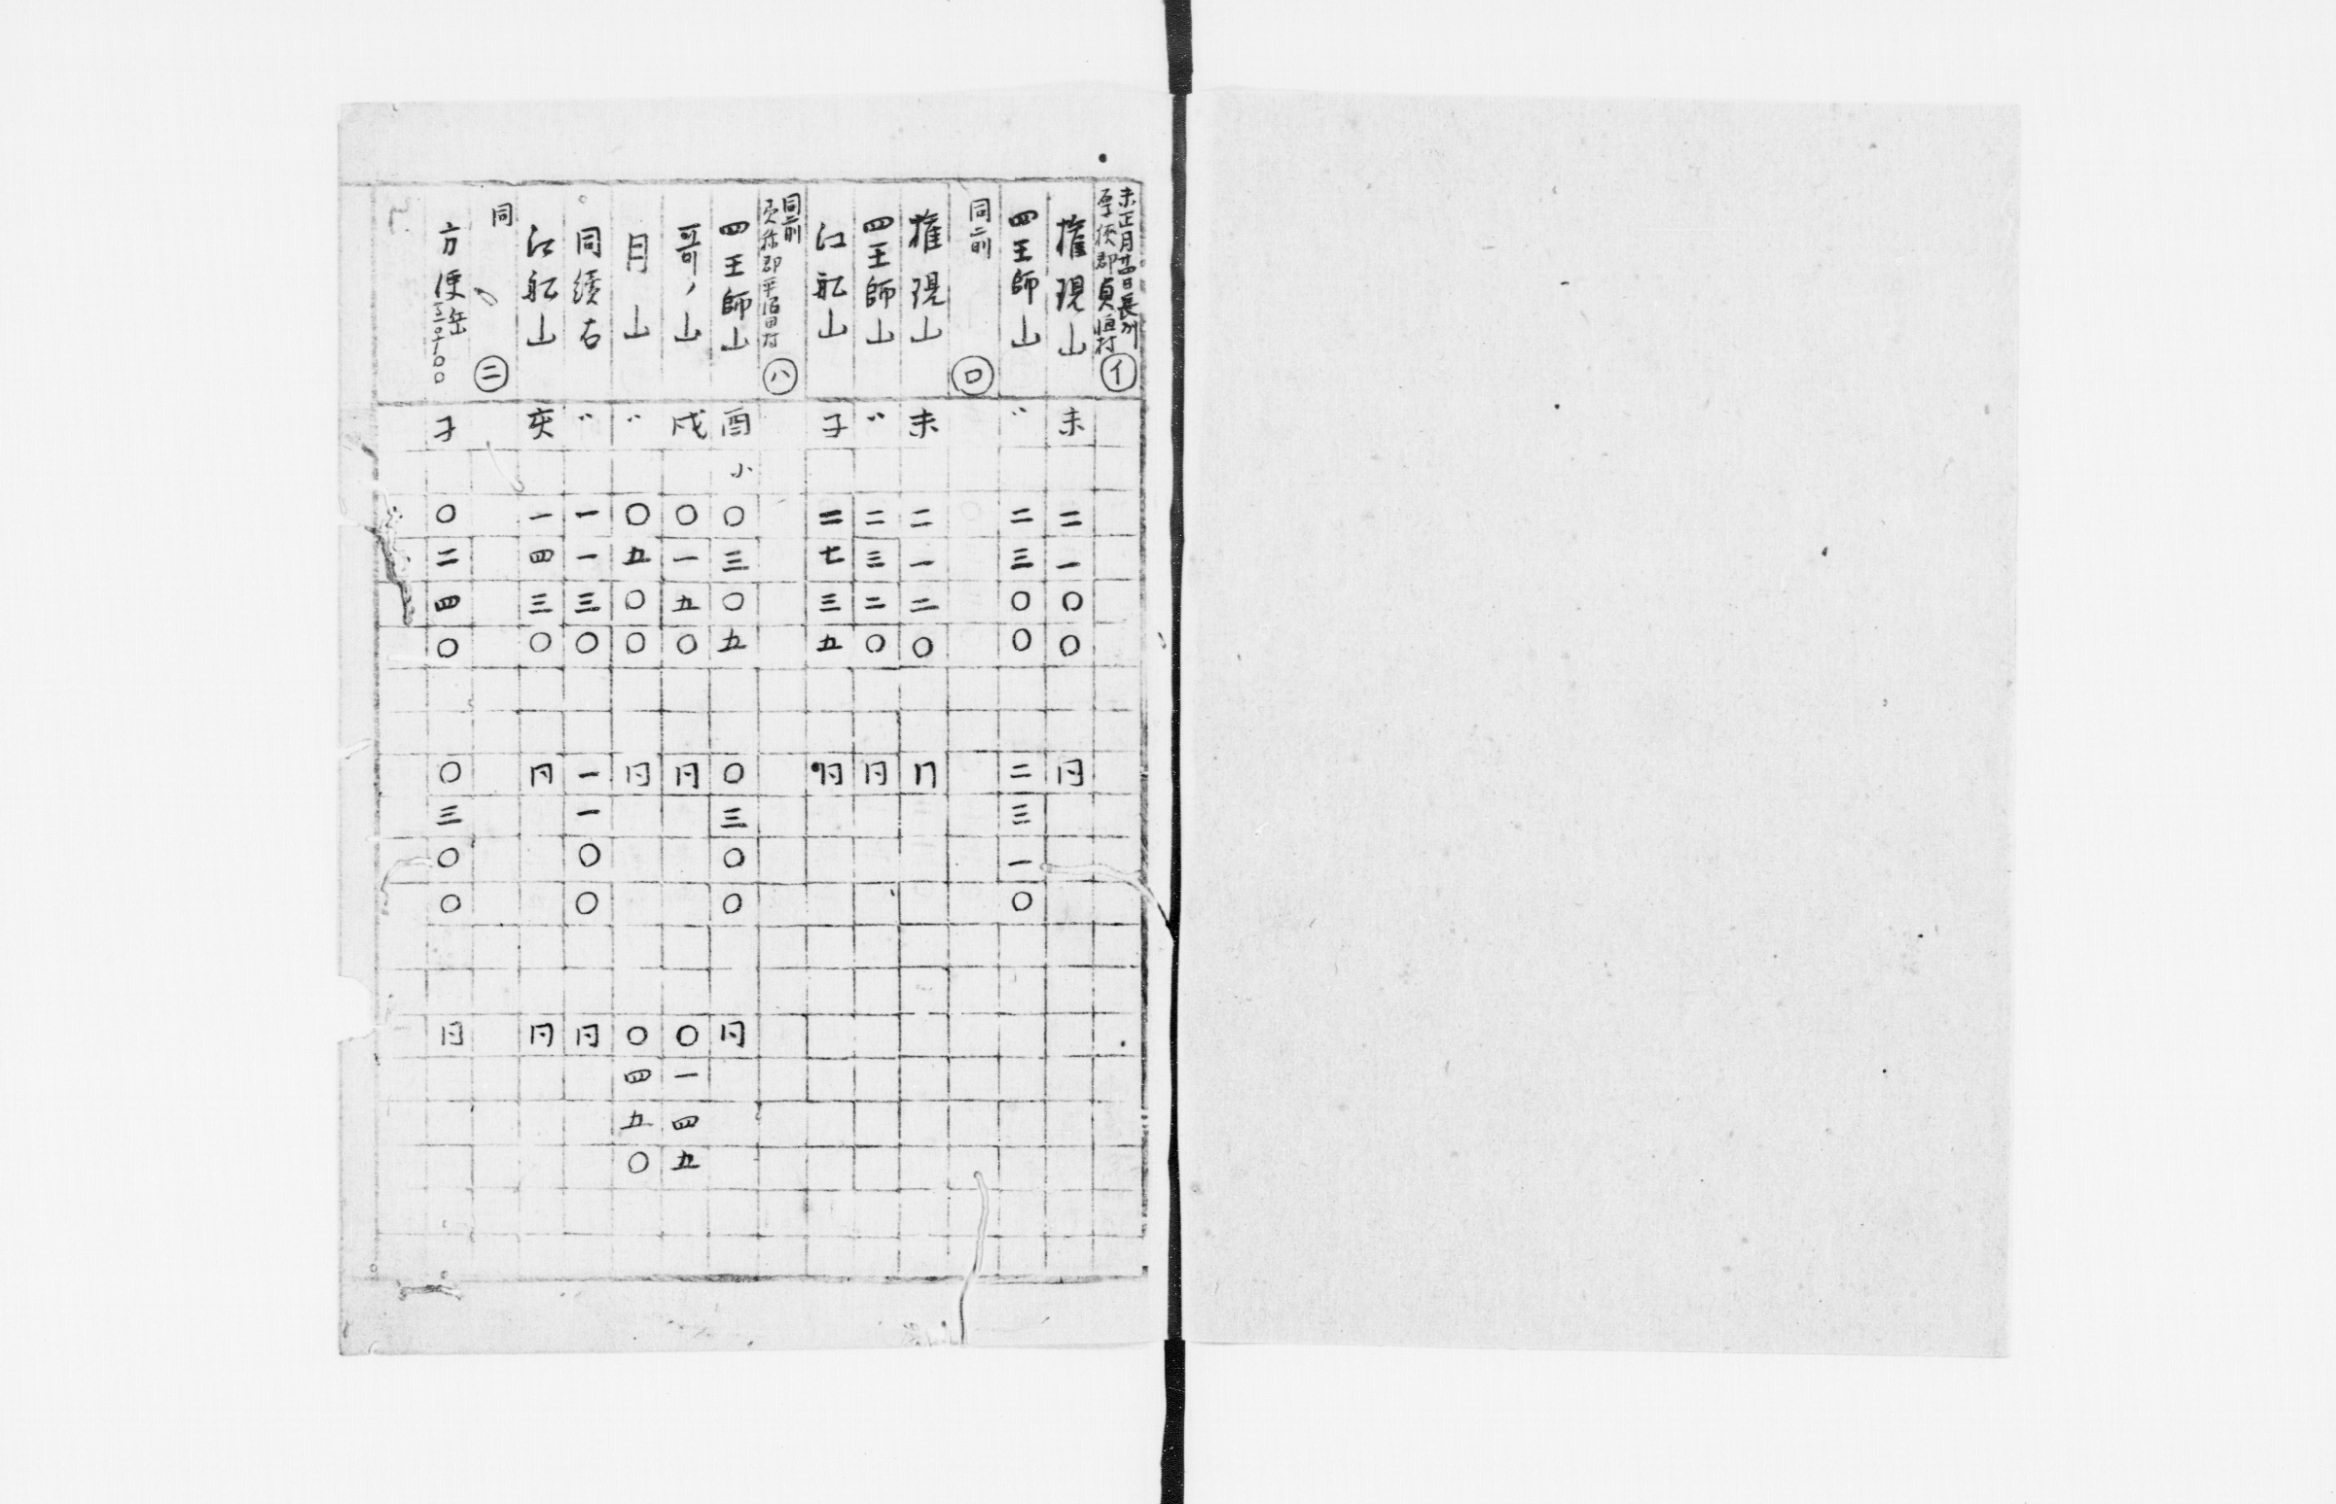 未正月廿四日長州
厚狭郡貞恒村 イ
権現山 未 二一〇〇 同
四王師山 〃 二三〇〇 二三一〇
同前 ロ
権現山 未 二一二〇 同
四王師山 〃 二三二〇 同
江舩山 子 二七三五 同
同前
郡平原田村 ハ
四王師山 酉 小 〇三〇五 〇三〇〇 同
哥ノ山 戌 〇一五〇 同 〇一四五
月山 〃 〇五〇〇 同 〇四五〇
同続古 〃 一一三〇 一一〇〇 同
江舩山 亥 一四三〇 同 同
同 ニ
方便岳 子 〇二四〇 〇三〇〇 同